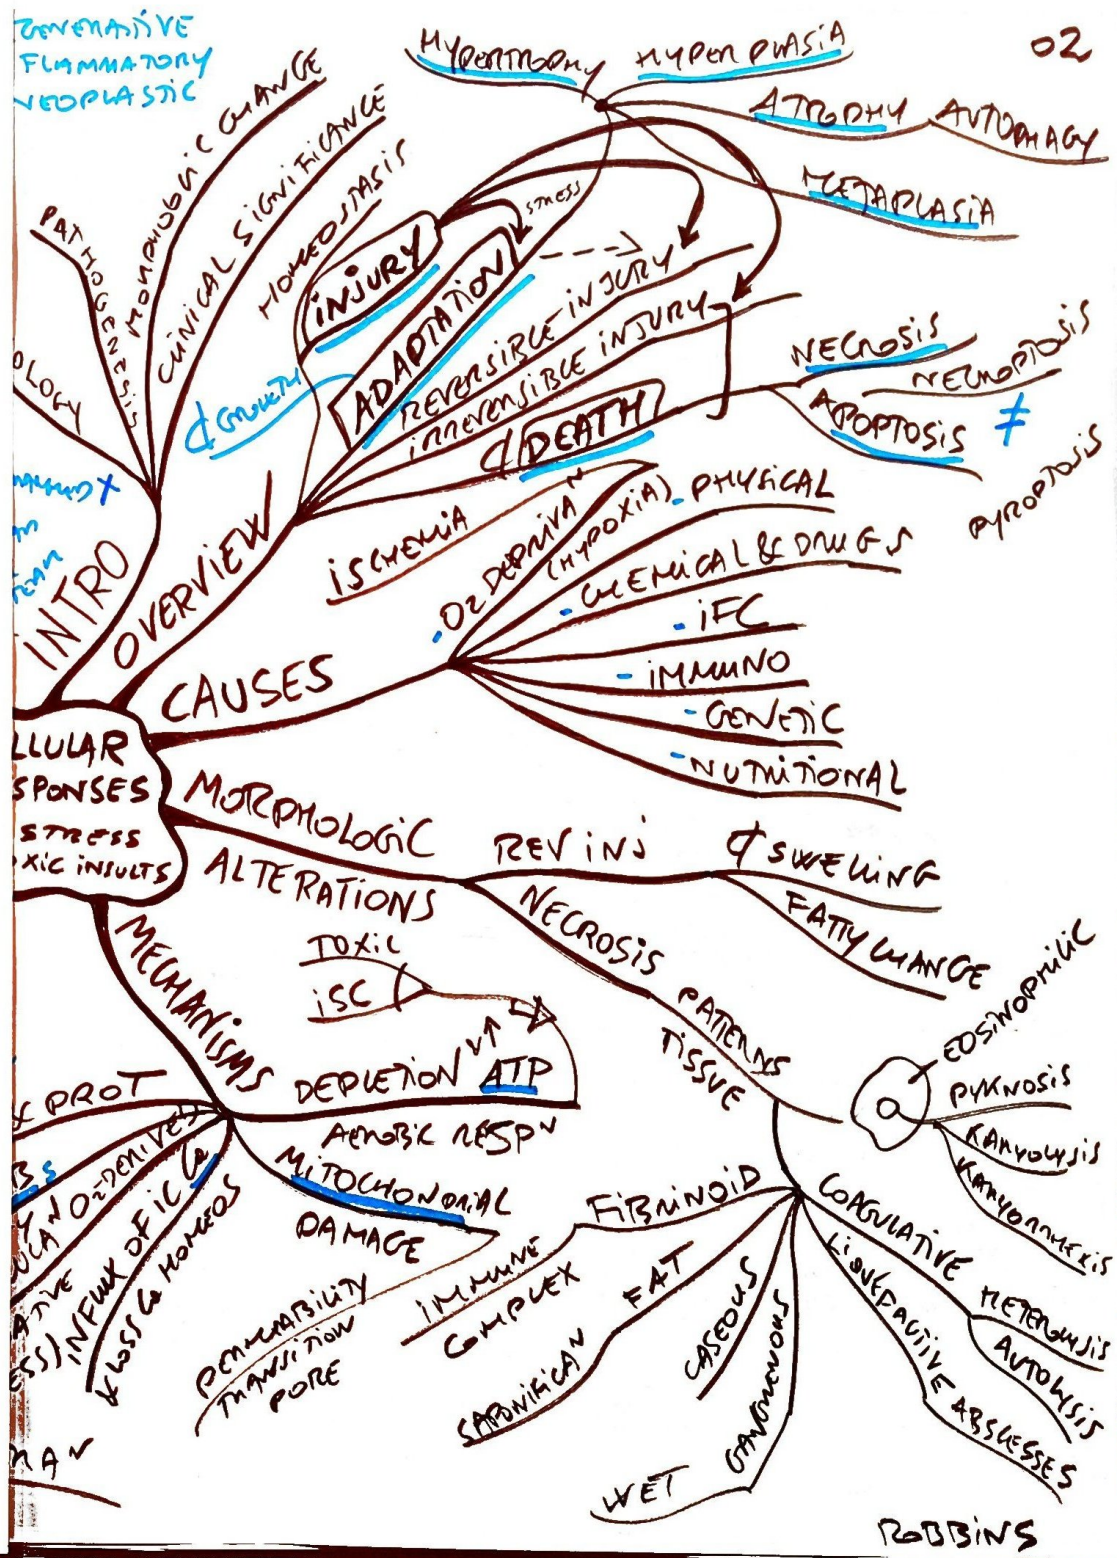 02
HYPERTROPHY
HYPERPLASIA
ATROPHY
AUTOPHAGY
METAPLASIA
FLAMMATORY
NEOPLASTIC
PATHOGENESIS
MORPHOLOGIC CHANGE
CLINICAL SIGNIFICANCE
HOMEOSTASIS
OLOGY
INTRO
OVERVIEW
INJURY
STRESS
ADAPTATION
GROWTH
REVERSIBLE INJURY
IRREVERSIBLE INJURY
DEATH
NECROSIS
NECROPTOSIS
APOPTOSIS
≠
PYROPTOSIS
CAUSES
ISCHEMIA
O2 DEPRIVA N
(HYPOXIA)
- PHYSICAL
- CHEMICAL & DRUGS
- IFC
- IMMUNO
- GENETIC
- NUTRITIONAL
LLULAR
SPONSES
STRESS
XIC INSULTS
MORPHOLOGIC
ALTERATIONS
REV INJ
SWELLING
FATTY CHANGE
NECROSIS
PATTERNS
TISSUE
EOSINOPHILIC
PYKNOSIS
KARYOLYSIS
KARYORRHEXIS
COAGULATIVE
HETEROLYSIS
AUTOLYSIS
LIQUEFACTIVE
ABSCESSES
GANGRENOUS
WET
CASEOUS
FAT
SAPONIFICA N
FIBRINOID
IMMUNE
COMPLEX
MECHANISMS
TOXIC
ISC
DEPLETION ATP
AEROBIC RESP N
MITOCHONDRIAL
DAMAGE
PERMEABILITY
TRANSITION
PORE
INFLUX OF IC Ca
& LOSS Ca HOMEOS
O2-DERIVED
& PROT
ROBBINS